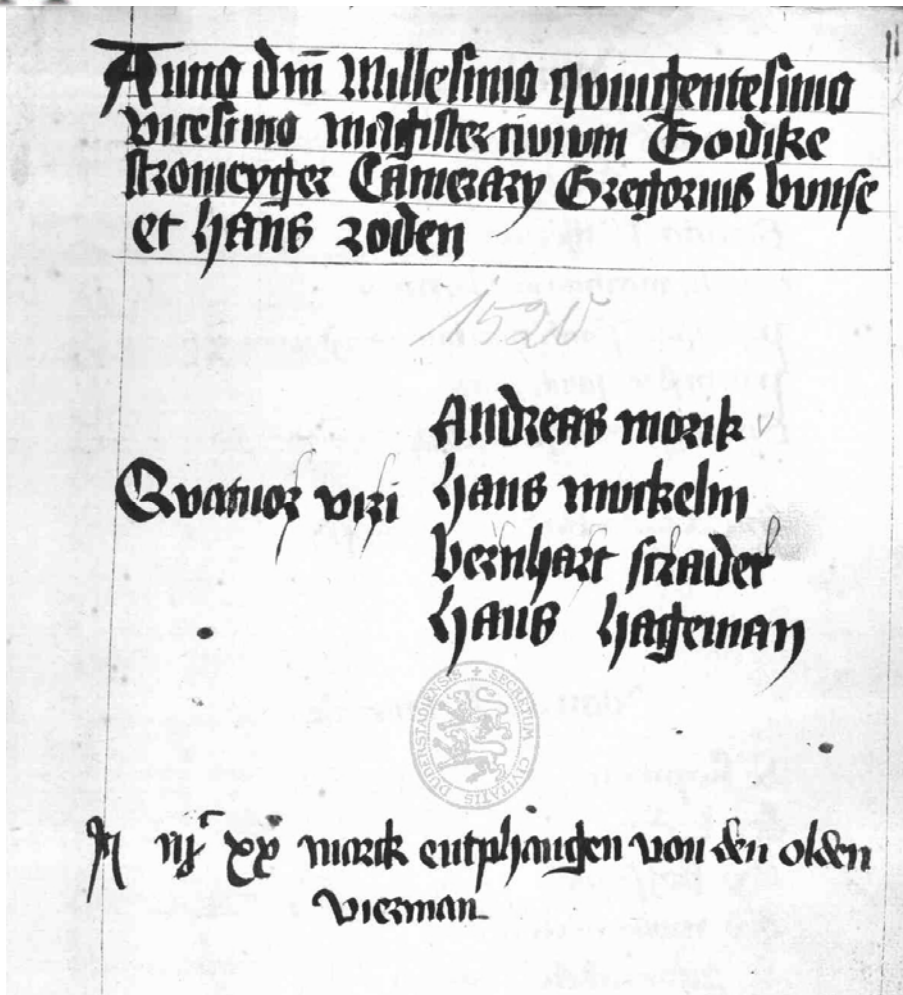 Anno dm̄ Millesimo quingentesimo
vicesimo magister civium Godike
stromeyger Camerary Gregorius bunse
et hans roden
1520
Andreas morik
Quatuor viri hans
bernhart strader
hans hageman
SECRETUM CIVITATIS DUDERSTADIENSIS
xx marck entphangen von den olden
vierman